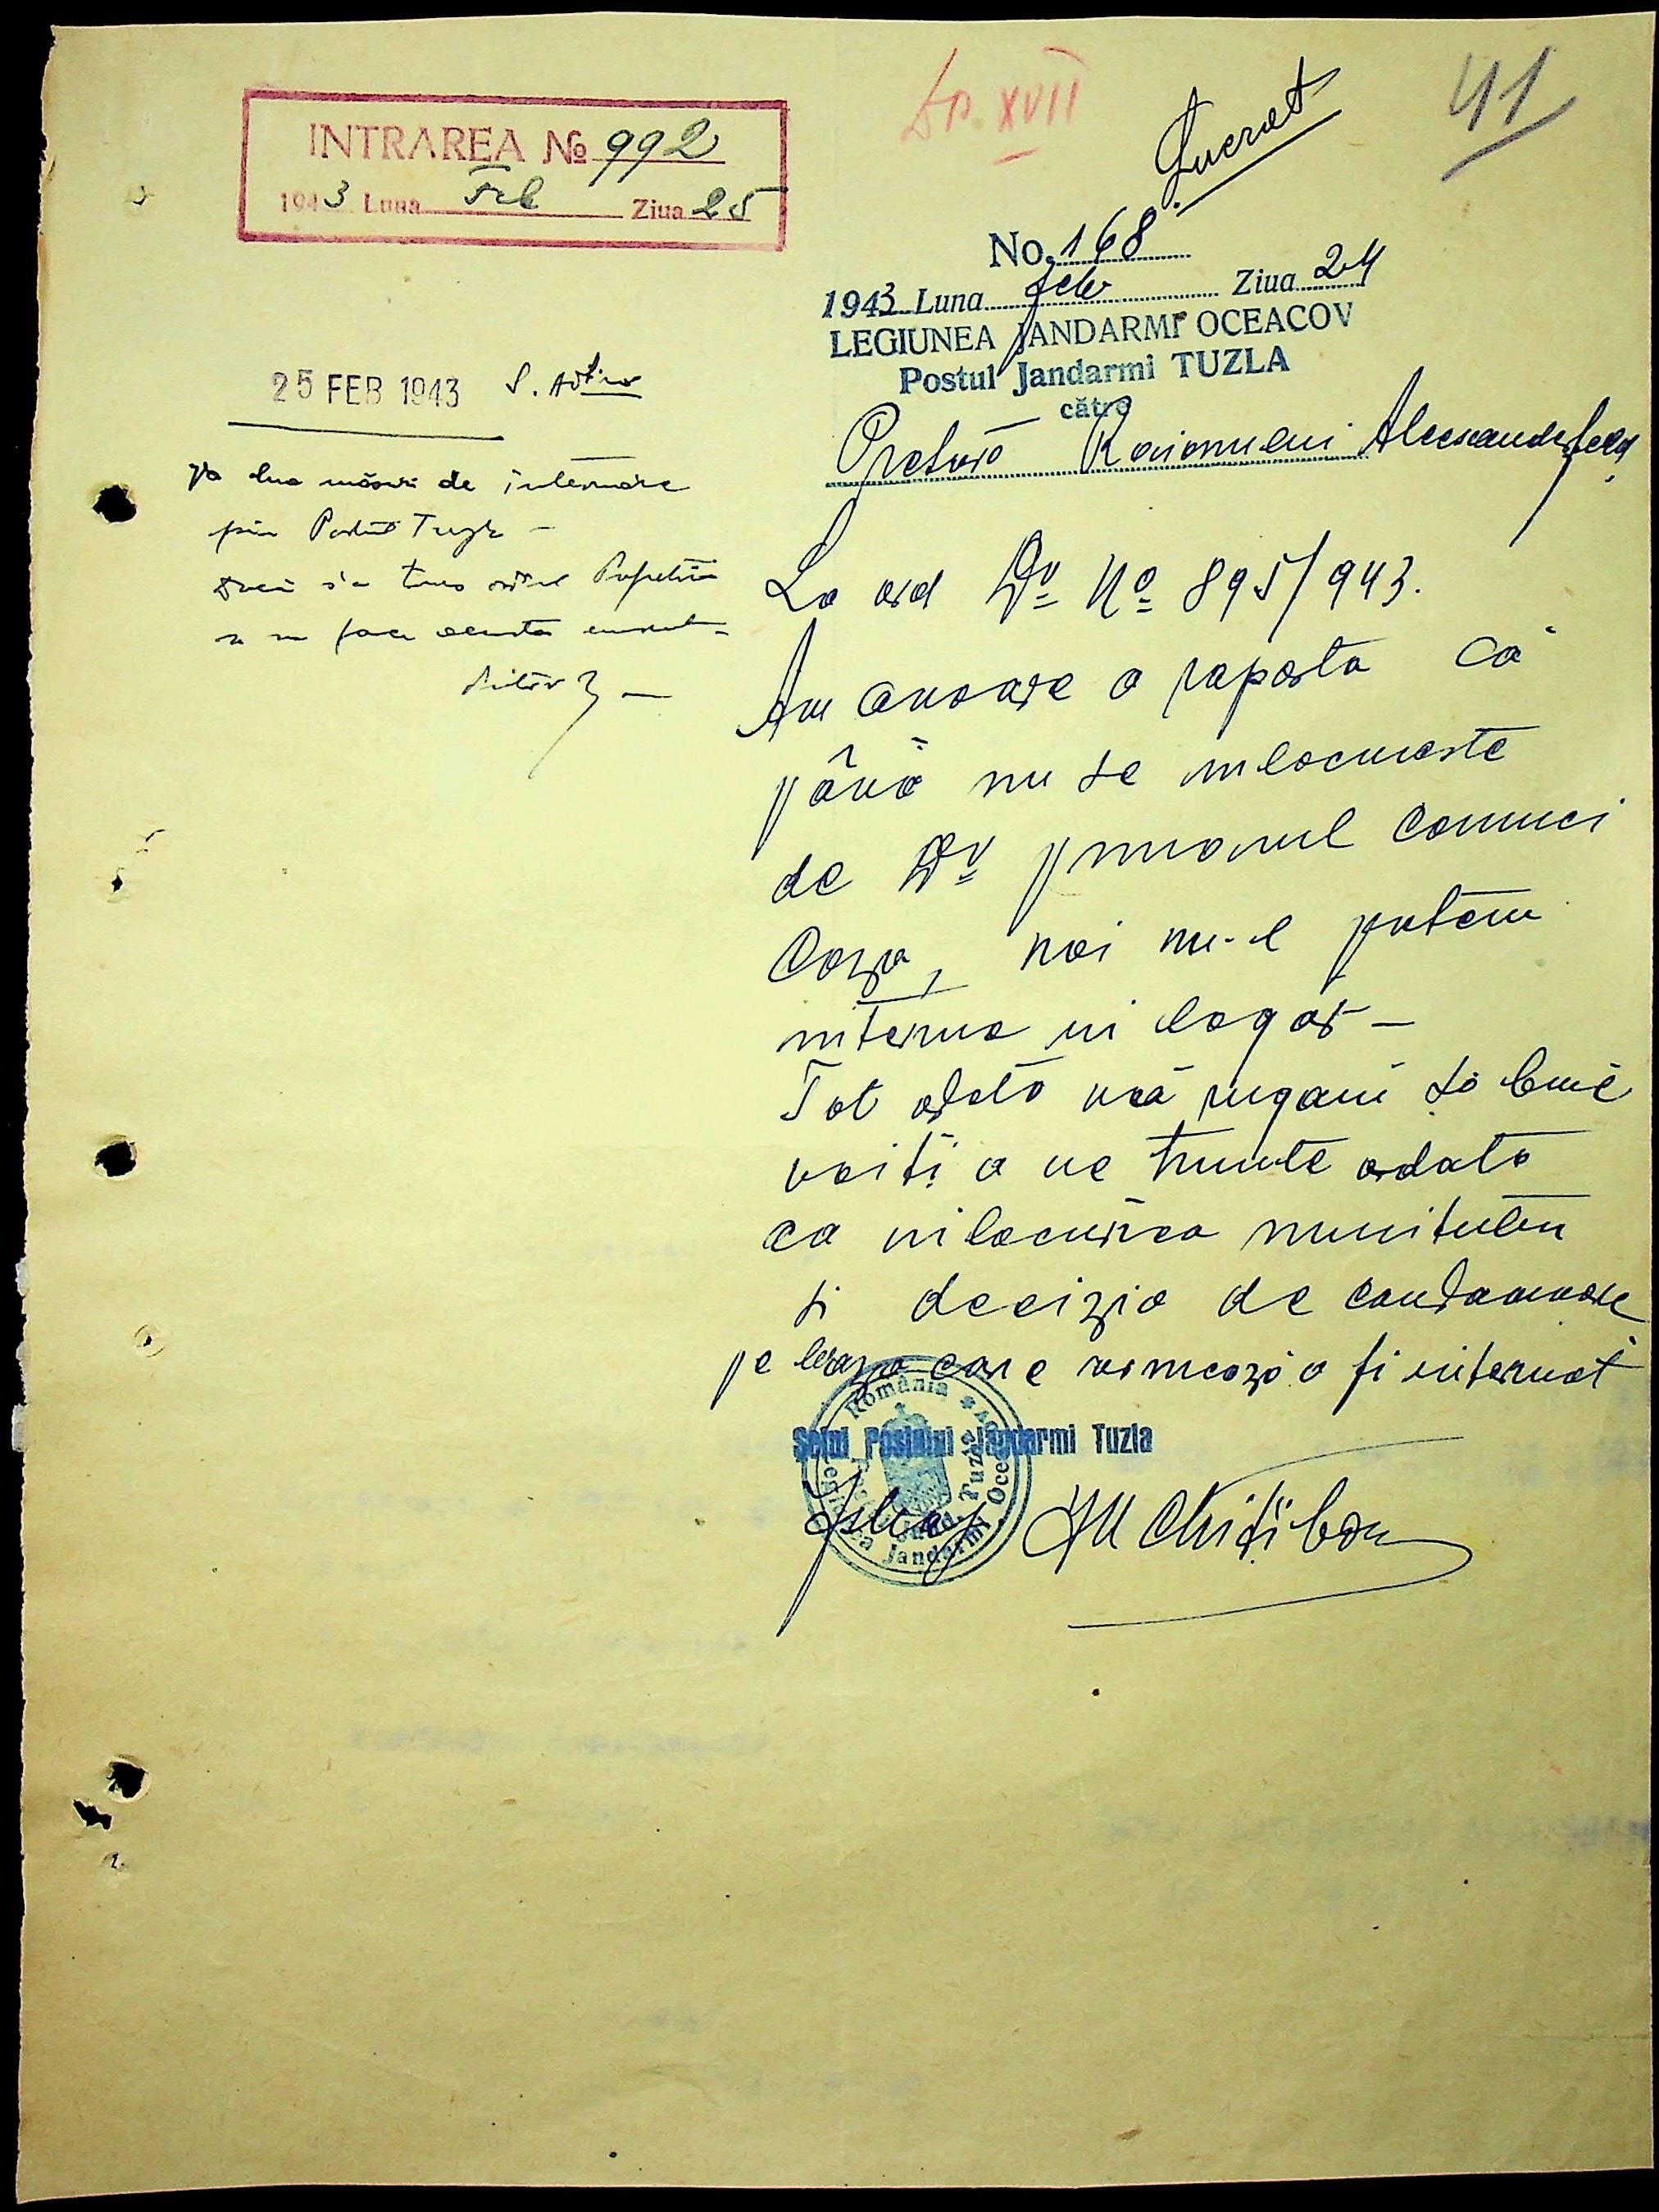 INTRAREA № 992
1943 Luna Feb Ziua 25
XVII
Lucrat
41
No. 168
1943 Luna feb Ziua 24
LEGIUNEA JANDARMI OCEACOV
Postul Jandarmi TUZLA
către
Pretura Raionului Alecsanderfeld
25 FEB 1943
Va lua măsuri de internare
prin Postul Tuzla –
La ord Dv No 895/943.
Am onoare a raporta că
până nu se inlocueste
de Dv primarul comunei
noi nu-l putem
interna in lagar –
Tot odată vă rugam să bine
voiti a ne trimite odata
ca inlocuirea numitului
si decizia de condamnare
pe baza care urmează a fi internat
România
Şeful Postului Jandarmi Tuzla
Legiunea Jandarmi Oceacov